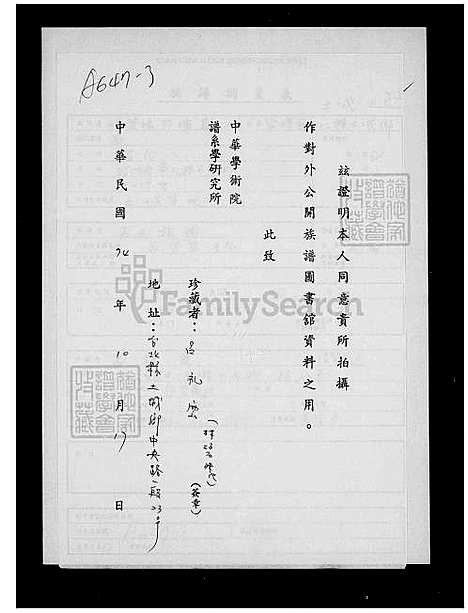 A647-3
茲證明本人同意貴所拍攝
作對外公開族譜圖書館資料之用。
此致
中華學術院
譜系學研究所
珍藏者：呂礼
(簽章)
地址：台北縣土城鄉中央路一段23号
中華民國74年10月17日
FamilySearch